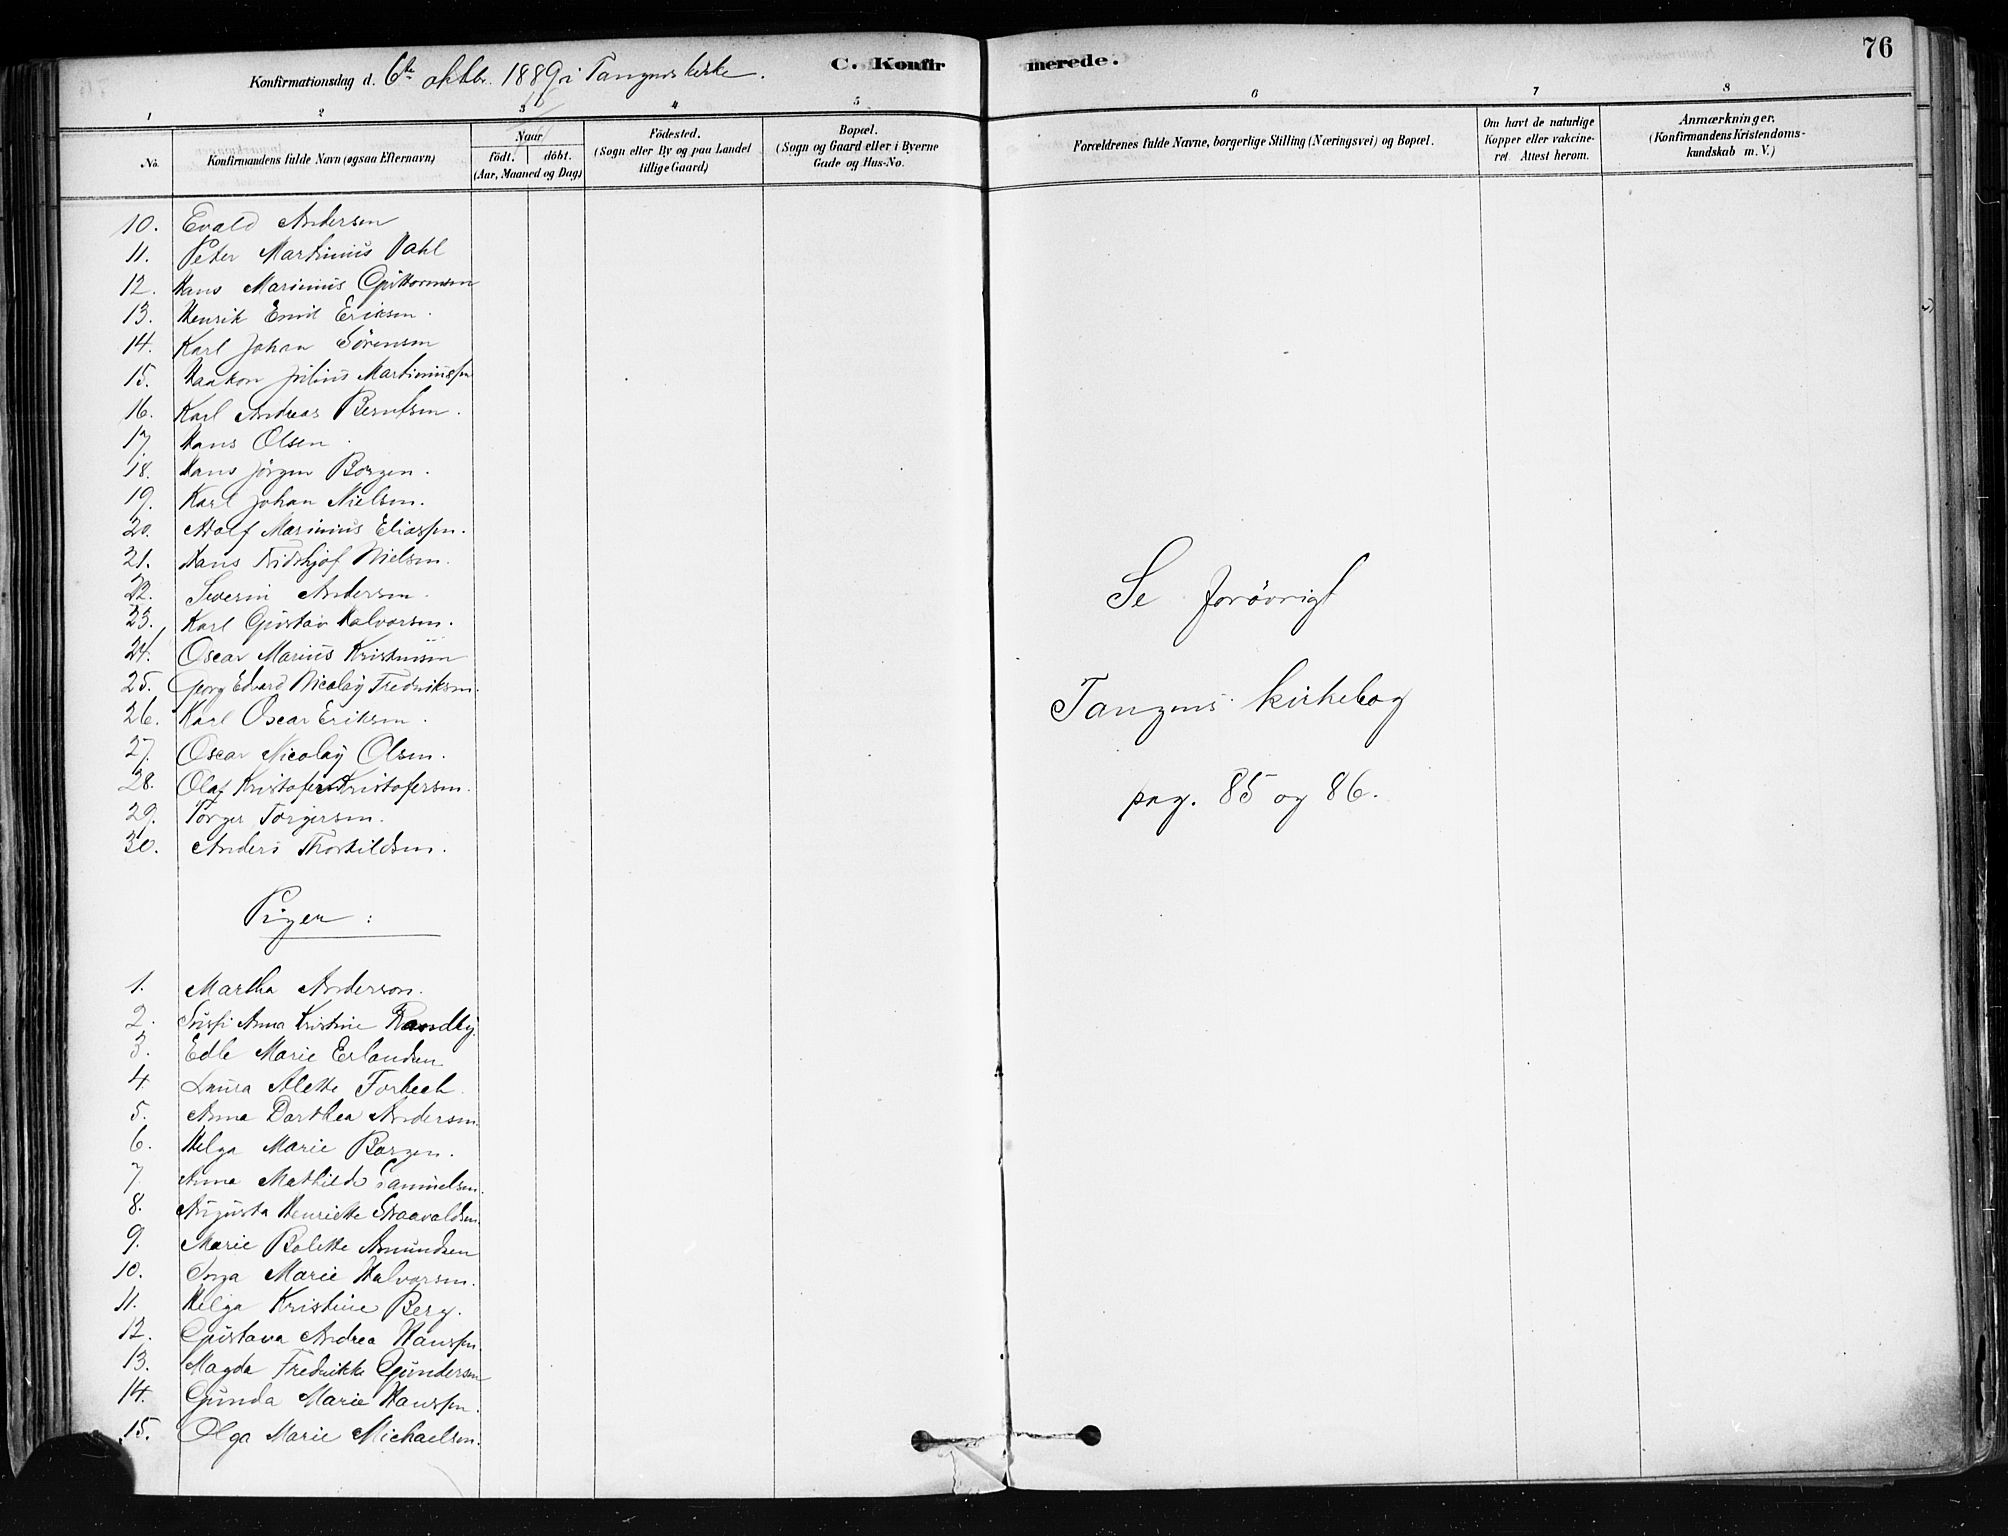 76
Konfirmationsdag d. 6te oktbr. 1889 i Tangens kirke.
C. Konfirmerede.
1 2 3 4 5 6 7 8
No.
Konfirmandens fulde Navn (ogsaa Efternavn)
Naar
født. døbt.
(Aar, Maaned og Dag)
Fødested.
(Sogn eller By og paa Landet
tillige Gaard)
Bopæl.
(Sogn og Gaard eller i Byerne
Gade og Hus-No.
Forældrenes fulde Navne, borgerlige Stilling (Næringsvei) og Bopæl.
Om havt de naturlige
Kopper eller vakcine-
ret. Attest herom.
Anmærkninger.
(Konfirmandens Kristendoms-
kundskab m. V.)
10. Evald Andersen
11. Peter Martinius Dahl
12. Hans Marinius Guttormsen
13. Henrik Emil Eriksen.
14. Karl Johan Sørensen
15. Haakon Julius Martiniussen
16. Karl Andreas Berntsen.
17. Hans Olsen.
18. Hans Jørgen Borgen.
19. Karl Johan Nielsen.
20. Adolf Marinius Eliassen.
21. Hans Fridthjof Nielsen.
22. Severin Andersen.
23. Karl Gustav Halvorsen.
24. Oscar Marius Kristensen
25. Georg Edvard Nicolay Fredriksen.
26. Karl Oscar Eriksen.
27. Oscar Nicolay Olsen.
28. Olaf Kristofer Kristofersen.
29. Torger Torgersen.
30. Anders Thorkildsen.
Piger:
1. Martha Anderson.
2. Anna Kristine Randby.
3. Edle Marie Erlandsen
4. Laura Alette Forbech.
5. Anna Dorthea Andersen.
6. Helga Marie Borgen.
7. Anna Mathilde Samuelsen.
8. Augusta Henriette Skaavaldsen.
9. Marie Bolette Amundsen
10. Inga Marie Halvorsen.
11. Helga Kristine Berg.
12. Gustava Andrea Hanssen.
13. Magda Fredrikke Gundersen
14. Gunda Marie Hanssen.
15. Olga Marie Michaelsen.
Se forøvrigt
Tangens kirkebog
pag. 85 og 86.